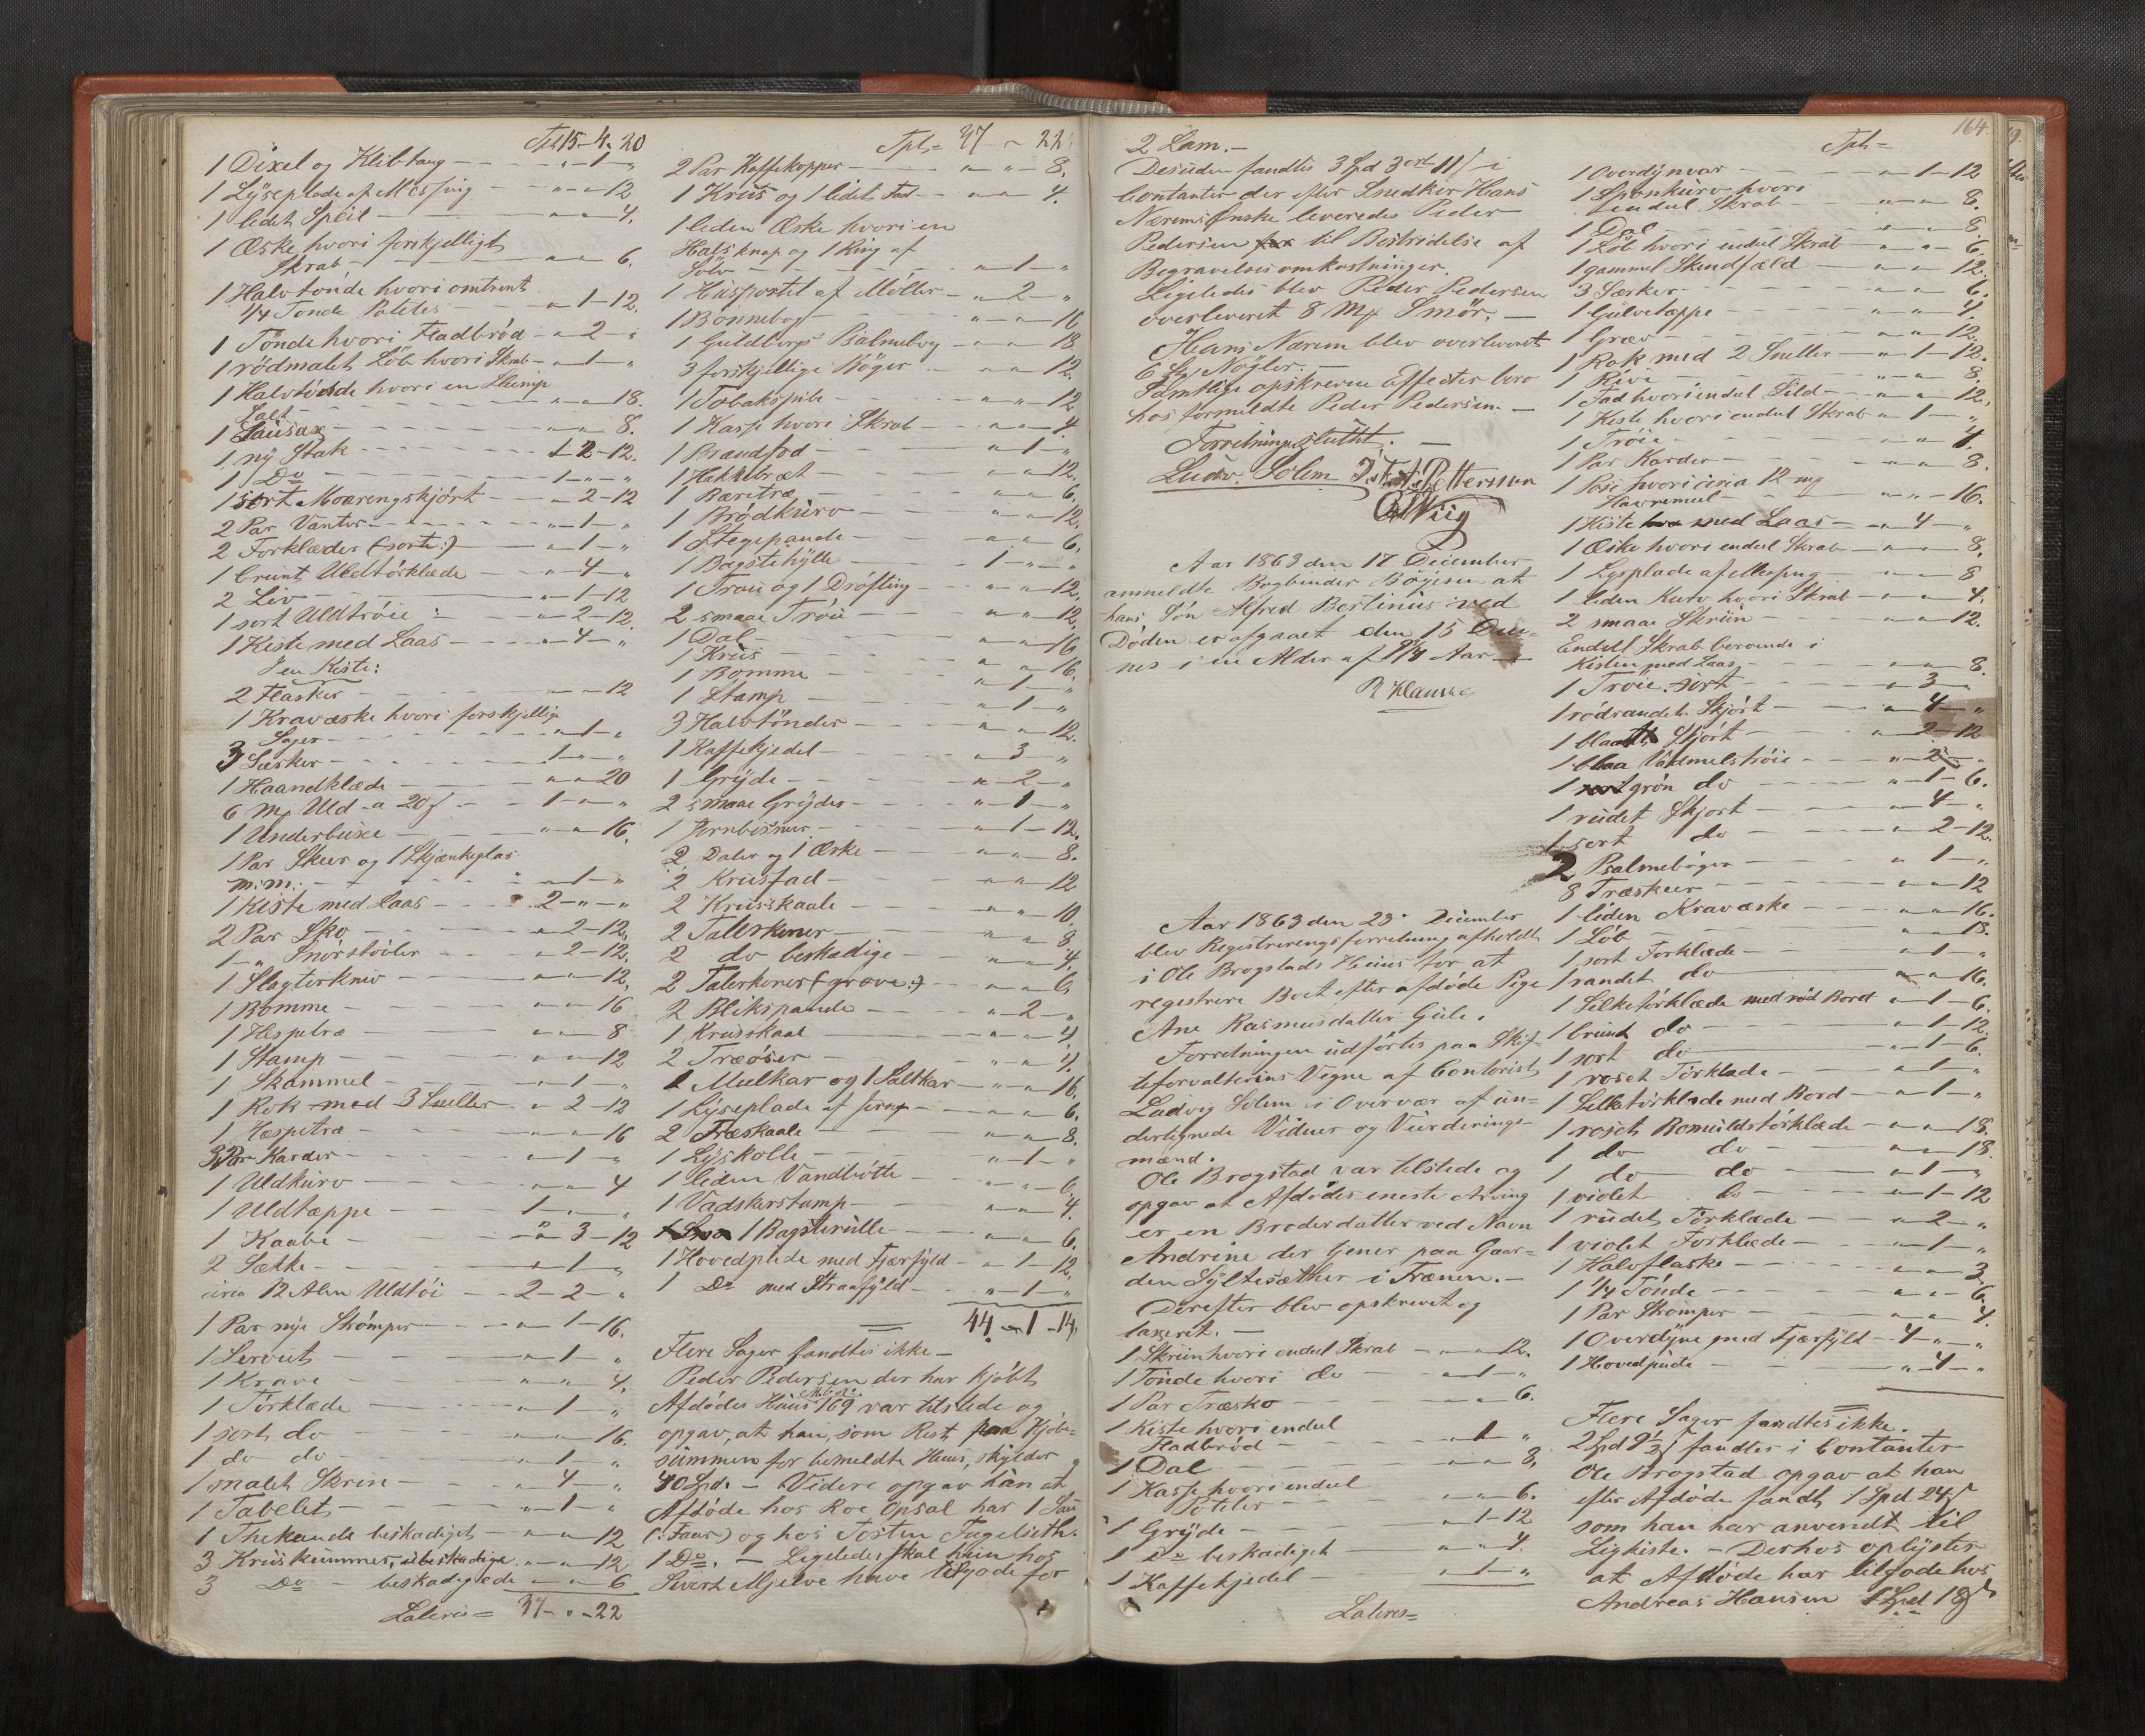 Tpt 15-4-20
1 Dixel og Klibtang - " - 1 - "
1 Lÿseplade af Messing - " - " - 12
1 lidet Speil - " - " - 4.
1 Æske hvori forskjelligt
Skrab - " - " - 6.
1 Halvtønde hvori omtrent
1/4 Tønde Potetes - " - 1 - 12.
1 Tønde hvori Fladbrød - " - 2 - "
1 rødmalet Løb hvori Skrab - " - 1 - "
1 Halvtønde hvori en Skimp
Salt - " - " - 18.
1 Sausax - " - " - 8.
1 nÿ Stak - 1 - 2 - 12.
1 Do - 1 - " - "
1 sort Moarengskjørt - " - 2 - 12
2 Par Vanter - " - 1 - "
2 Forklæder (sorte:) - " - 1 - "
1 brunt Uldtørklæde - " - 4 - "
2 Liv - " - 1 - 12
1 sort Uldtrøie - " - 2 - 12.
1 Kiste med Laas - " - 4 - "
I en Kiste:
2 Flasker - " - " - 12
1 Kravæske hvori forskjellige
Sager - " - 1 - "
3 Særker - 1 - " - "
1 Haandklæde - " - " - 20
6 Mg Uld a 20 ß - 1 - " - "
1 Underbuxe - " - " - 16.
1 Par Skeer og 1 Skjænkeglas
m:m: - " - 1 - "
1 Kiste med Laas - 2 - " - "
2 Par Sko - " - 2 - 12.
1 " Snørstøvler - " - 2 - 12.
1 Slagterkniv - " - " - 12.
1 Bomme - " - " - 16
1 Hesptræ - " - " - 8
1 Stamp - " - " - 12
1 Skammel - " - 1 - "
1 Rok med 3 Sneller - " - 2 - 12
1 Hæspetræ - " - " - 16
3 Par Karder - " - 1 - "
1 Uldkurv - " - " - 4
1 Uldtæppe - 1 - " - "
1 Kaabe - " - 3 - 12
2 Sække - " - 1 - "
circa 12 Alen Uldtøi - 2 - 2 - "
1 Par nye Strømper - " - 1 - 16.
1 Serviet - " - 1 - "
1 Krave - " - " - 4.
1 Tørklæde - " - 1 - "
1 sort do - " - " - 16.
1 do do - " - 1 - "
1 malet Skrin - " - 4 - "
1 Tabelet - " - 1 - "
1 Thekande beskadiget - " - " - 12
3 Kruskummer, ubeskadige - " - " - 12.
3 Do - beskadigede - " - " - 6
Lateris = 37 - " - 22
Tpt = 37 - " - 22
2 Par Kaffekopper - " - " - 8.
1 Krus og 1 lidet Fad - " - " - 4.
1 liden Æske hvori en
Halsknap og 1 Ring af
Sølv - " - 1 - "
1 Huspostil af Møller - " - 2 - "
1 Bønnebog - " - " - 16
1 Guldbergs Psalmebog - " - " - 18
3 forskjellige Bøger - " - " - 12.
1 Tobakspibe - " - " - 12
1 Kasse hvori Skrab - " - " - 4.
1 Brandfod - " - 1 - "
1 Hakkebræt - " - " - 12.
1 Bæretræ - " - " - 6.
1 Brødkurv - " - " - 12.
1 Stegepande - " - " - 6.
1 Bagstehÿlle - 1 - " - "
1 Trau og 1 Drøfling - " - " - 12.
2 smaae Trøie - " - " - 12.
1 Dal - " - " - 16
1 Krus - " - " - 16.
1 Bomme - " - 1 - "
1 Stamp - " - 1 - "
3 Halvtønder - " - " - 12.
1 Kaffekjedel - " - 3 - "
1 Grÿde - " - 2 - "
2 smaae Grÿder - " - 1 - "
1 Jernbismer - " - 1 - 12.
2 Daler og 1 Æske - " - " - 8.
2 Krusfad - " - " - 12
2 Krusskaale - " - " - 10.
2 Tallerkener - " - " - 8
2 do beskadige - " - " - 4.
2 Talerkener (grove:) - " - " - 6
2 Blikspande - " - 2 - "
1 Krusskaal - " - " - 4
2 Træøser - " - " - 4.
1 Meelkar og 1 Saltkar - " - " - 16.
1 Lÿseplade af Jern - " - " - 6.
2 Træskaale - " - " - 8.
1 Lÿskolle - " - 1 - "
1 liden Vandbøtte - " - " - 6
1 Vadskerstamp - " - " - 4.
1 Bagsterulle - " - " - 6.
1 Hovedpude med Fjærfÿld - " - 1 - 12.
1 Do med Straafÿld - " - 1 - "
44 - 1 - 14.
Flere Sager fandtes ikke -
Peder Pedersen der har kjøbt
Afdødes Huus Mtr. No. 169 var tilstede og
opgav, at han, som Rest paa Kjøbe-
summen for bemeldte Huus, skÿlder
40 Spd. - Videre opgav han at
Afdøde hos Roe Opsal har 1 Sau
(: Faar) og hos Tosten Fagelseth
1 Do. - Ligeledes skal hun hos
Sivert Mjelve have tilgode for
164.
2 Lam. -
Desuden fandtes 3 Spd 3 ort 11 ß i
Contanter der efter Snedker Hans
Nærems Ønske leveredes Peder
Pedersen til Bestridelse af
Begravelsesomkostninger.
Ligeledes blev Peder Pedersen
overleveret 8 Mg Smør. -
Hans Nærem blev overleveret
6 Stk Nøgler. -
Samtlige opskrevne Effecter bero
hos formeldte Peder Pedersen. -
Forretningen sluttet. -
Ludv. Solem Pettersson
Wiig
Aar 1863 den 17 December
anmeldte Bogbinder Böÿesen at
hans Søn Alfred Bertinius ved
Døden er afgaaet den 15 Den-
nes i en Alder af 9/4 Aar -
Aar 1863 den 23 December
blev Registreringsforretning afholdt
i Ole Brogstads Huus for at
registrere Boet efter afdøde Pige
Ane Rasmusdatter Gule.
Forretningen udførtes paa Skif-
teforvalterens Vegne af Contorist
Ludvig Solem i Overvær af un-
dertegnede Vidner og Vurderings-
mænd.
Ole Brogstad var tilstede og
opgav at Afdødes eneste Arving
er en Broderdatter ved Navn
Andrine der tjener paa Gaar-
den Sÿltesæther i Frænen. -
Derefter blev opskrevet og
taxeret. -
1 Skriin hvori endel Skrab - " - " - 12.
1 Tønde hvori do - " - 1 - "
1 Par Træsko - " - " - 6.
1 Kiste hvori endel
Fladbrød - " - 1 - "
1 Dal - " - " - 8.
1 Kasse hvori endel
Poteter - " - " - 6.
1 Grÿde - " - 1 - 12
1 Do beskadiget - " - " - 4.
1 Kaffekjedel - " - 1 - "
Lateris =
Tpt =
1 Overdÿnvar - " - 1 - 12
1 Spankurv hvori
endeel Skrab - " - " - 8.
1 Dal - " - " - 8.
1 Løb hvori endeel Skrab - " - " - 6.
1 gammel Skindfæld - " - " - 12.
3 Særker - " - " - 6.
1 Gulvtæppe - " - " - 4.
1 Græv - " - " - 12.
1 Rok med 2 Sneller - " - 1 - 12.
1 Rive - " - " - 8.
1 Fad hvori endeel Sild - " - " - 12.
1 Kiste hvori endeel Skrab - " - 1 - "
1 Trøie - " - " - 4.
1 Par Karder - " - " - 8.
1 Pose hvori circa 12 mg
Havremeel - " - " - 16.
1 Kiste med Laas - " - 4 - "
1 Æske hvori endeel Skrab - " - " - 8.
1 Lysplade af Messing - " - " - 8
1 liden Kurv hvori Skrab - " - " - 4.
2 smaae Skriin - " - " - 12.
Endeel Skrab beroende i
Kisten med Laas - " - " - 8.
1 Trøie sort - " - 3 - "
1 rødrandet Skjørt - " - 4 - "
1 blaat Skjørt - " - 2 - 12
1 blaa Vadmelstrøie - " - 2 - "
1 grøn do - " - 1 - 6.
1 rudet Skjort - " - 4 - "
1 sort do - " - 2 - 12.
2 Psalmebøger - " - 1 - "
8 Træskeer - " - " - 12
1 liden Kravæske - " - " - 16.
1 Løb - " - " - 18.
1 sort Forklæde - " - 1 - "
1 randet do - " - " - 16.
1 Silketørklæde med rød Bord - " - 1 - 6.
1 brunt do - " - 1 - 12.
1 sort do - " - 1 - 6.
1 roset Tørklæde - " - 1 - "
1 Silketørklæde med Bord - " - 1 - "
1 roset Bomuldstørklæde - " - " - 18.
1 do do - " - " - 18.
1 do do - " - 1 - "
1 violet do - " - 1 - 12
1 rudet Tørklæde - " - 2 - "
1 violet Forklæde - " - 1 - "
1 Halvflaske - " - " - 3
1 1/4 Tønde - " - " - 6.
1 Par Strømper - " - " - 4.
1 Overdÿne med Fjærfÿld - 4 - " - "
1 Hovedpude - " - 4 - "
Flere Sager fandtes ikke.
2 Spd 9 1/2 ß fandtes i Contanter
Ole Brogstad opgav at han
efter Afdøde fandt 1 Spd 24 ß
som han har anvendt til
Ligkiste. - Derhos oplÿstes
at Afdøde har tilgode hos
Andreas Hansen 1 Spd 18 ß